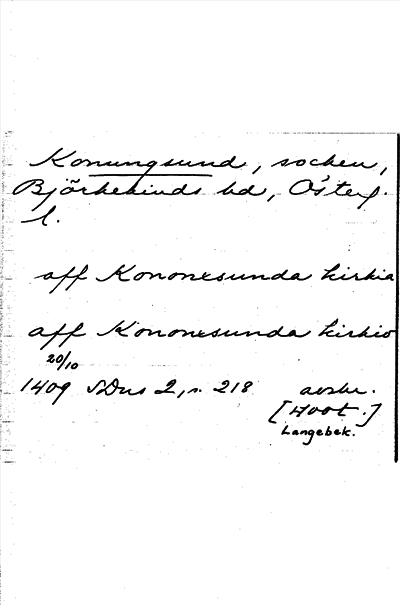 Konungsund, socken,
Björkekinds hd, Österg.
l.
aff Kononxsunda kirkia
aff Kononxsunda kirkio
20/10
1409 SDns 2, s. 218 avskr.
[Hoot.]
Langebek.